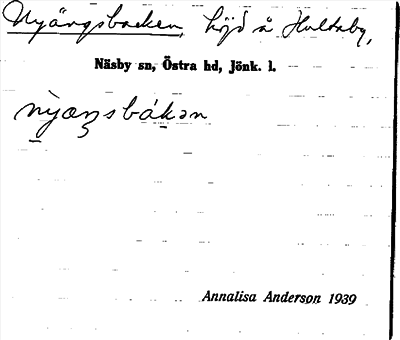 Nyängsbacken, höjd å Hultaby,
Näsby sn, Östra hd, Jönk. l.
nỳæŋsbákən
Annalisa Anderson 1939